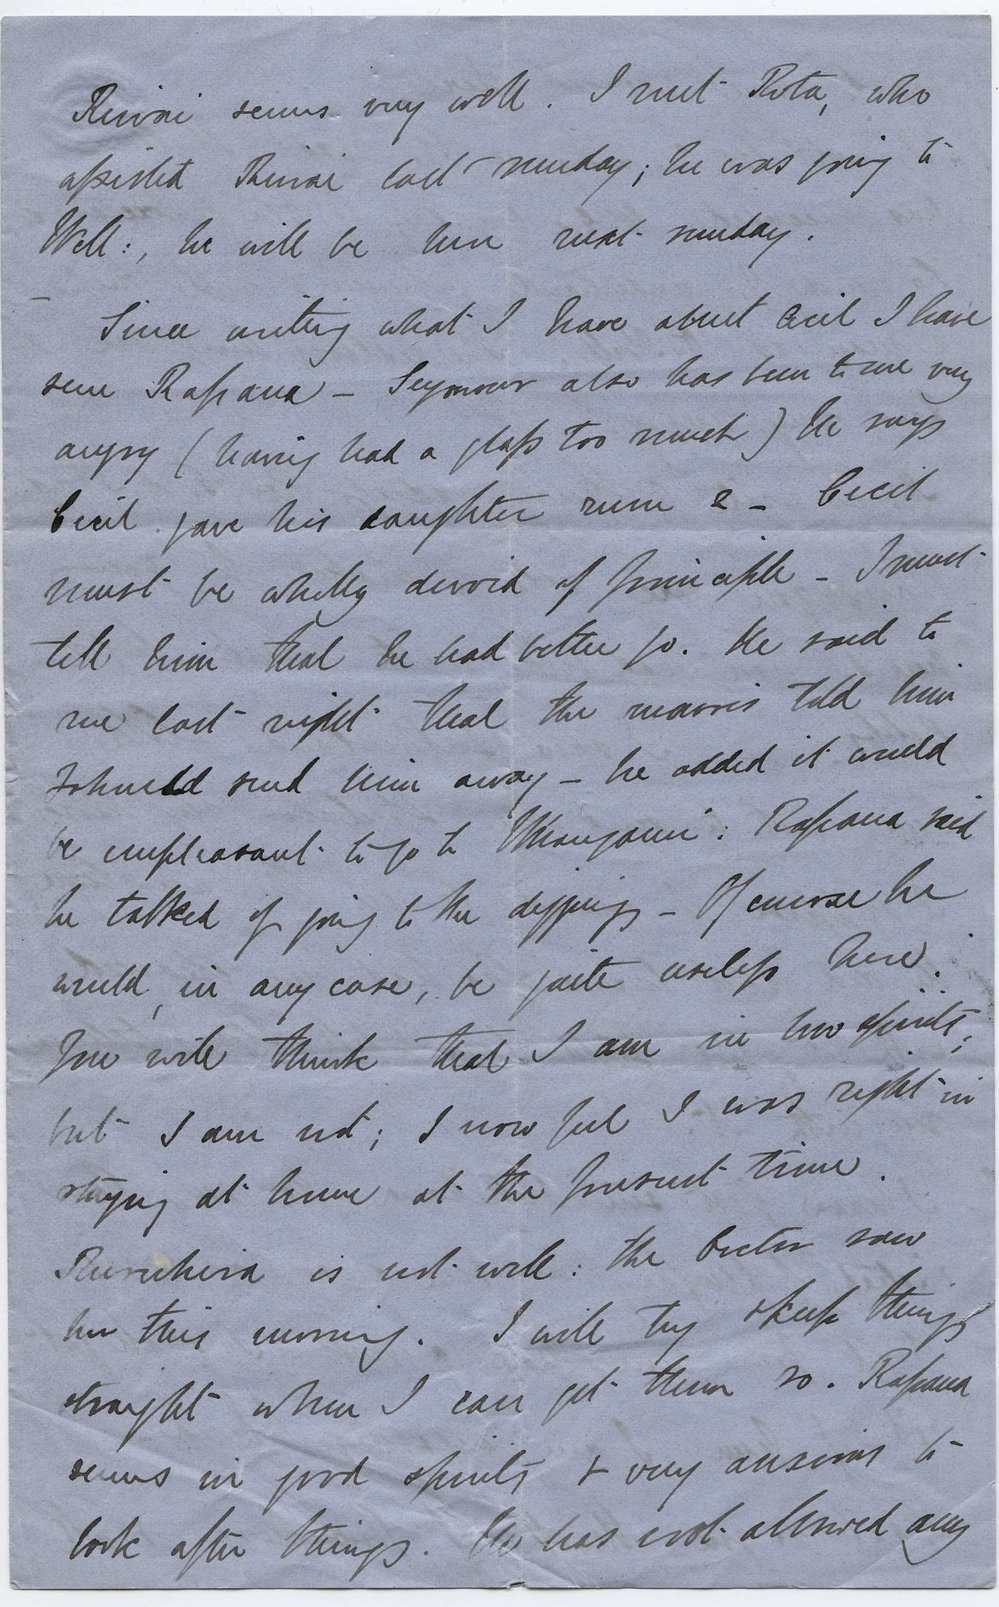 Riwai seems very well. I met Rota, who
assisted Riwai last sunday; he was going to
Well:, he will be here next sunday.
Since writing what I have about Cecil I have
seen Rapana – Seymour also has been to me very
angry (having had a glass too much) He says
Cecil gave his daughter rum & – Cecil
must be wholly devoid of principle – I must
tell him that he had better go. He said to
me last night that the maoris told him
I should send him away – he added it would
be unpleasant to go to : Rapana said
he talked of going to the diggings – Of course he
would, in any case, be quite useless here.
You will think that I am in low spirits,
but I am not; I now feel I was right in
staying at home at the present time.
is not well: the Doctor saw
her this morning. I will try & keep things
straight when I can get them so. Rapana
seems in good spirits & very anxious to
look after things. He has not allowed any